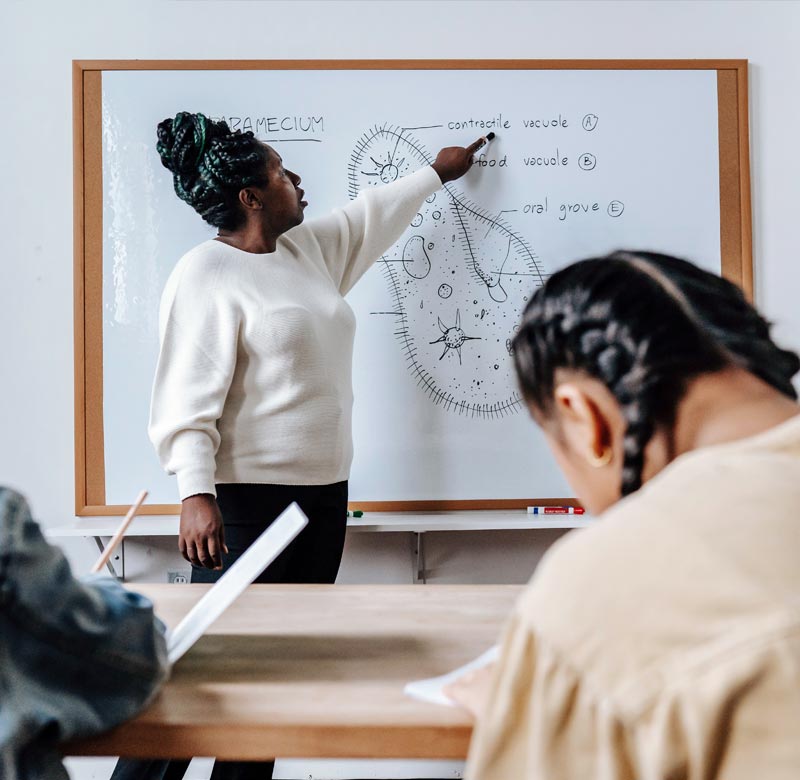 PARAMECIUM
contractile vacuole A
food vacuole B
oral grove E